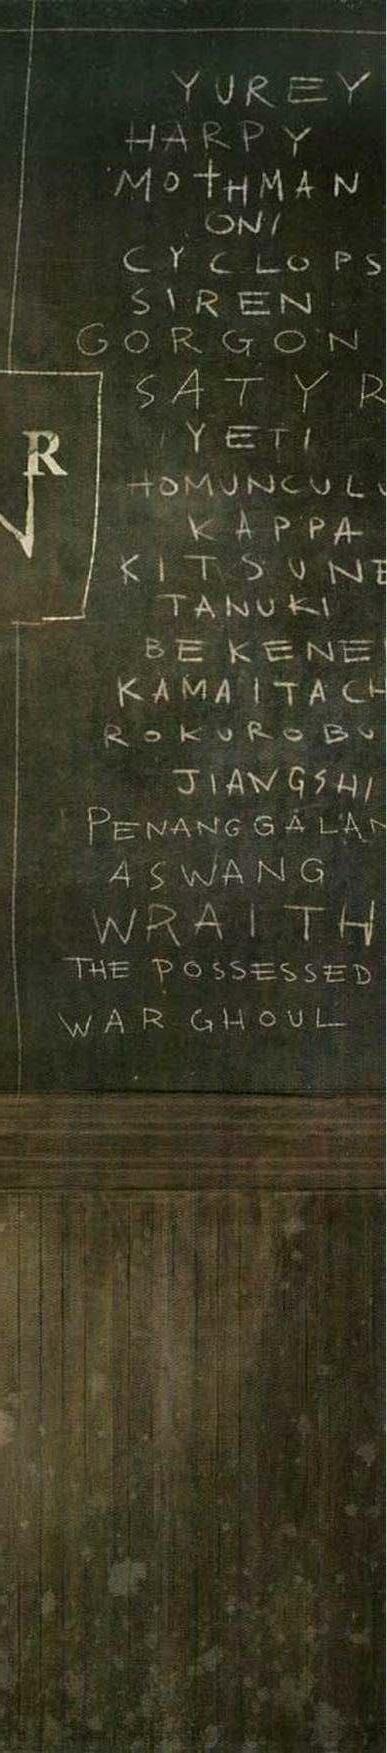 YUREY
HARPY
MOTHMAN
ONI
CYCLOPS
SIREN
GORGON
SATYR
R
YETI
HOMUNCULU
KAPPA
KITSUNE
TANUKI
BEKENE
KAMAITACH
ROKUROBU
JIANGSHI
PENANGGALAN
ASWANG
WRAITH
THE POSSESSED
WAR GHOUL